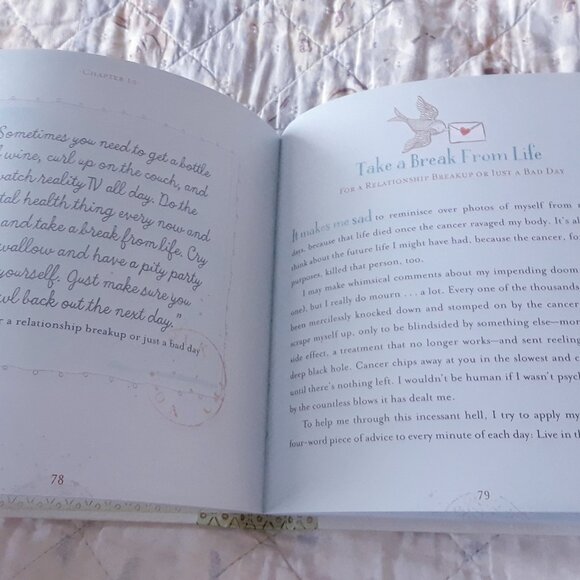 Chapter 10
Sometimes you need to get a bottle
wine, curl up on the couch, and
watch reality TV all day. Do the
tal health thing every now and
and take a break from life. Cry
wallow and have a pity party
yourself. Just make sure you
wl back out the next day."
r a relationship breakup or just a bad day
78
Take a Break From Life
For a Relationship Breakup or Just a Bad Day
It makes me sad to reminisce over photos of myself from
days, because that life died once the cancer ravaged my body. It's a
think about the future life I might have had, because the cancer, fo
purposes, killed that person, too.
I may make whimsical comments about my impending doom
one), but I really do mourn . . . a lot. Every one of the thousands
been mercilessly knocked down and stomped on by the cancer
scrape myself up, only to be blindsided by something else—mor
side effect, a treatment that no longer works—and sent reeling
deep black hole. Cancer chips away at you in the slowest and c
until there's nothing left. I wouldn't be human if I wasn't psych
by the countless blows it has dealt me.
To help me through this incessant hell, I try to apply my
four-word piece of advice to every minute of each day: Live in th
79